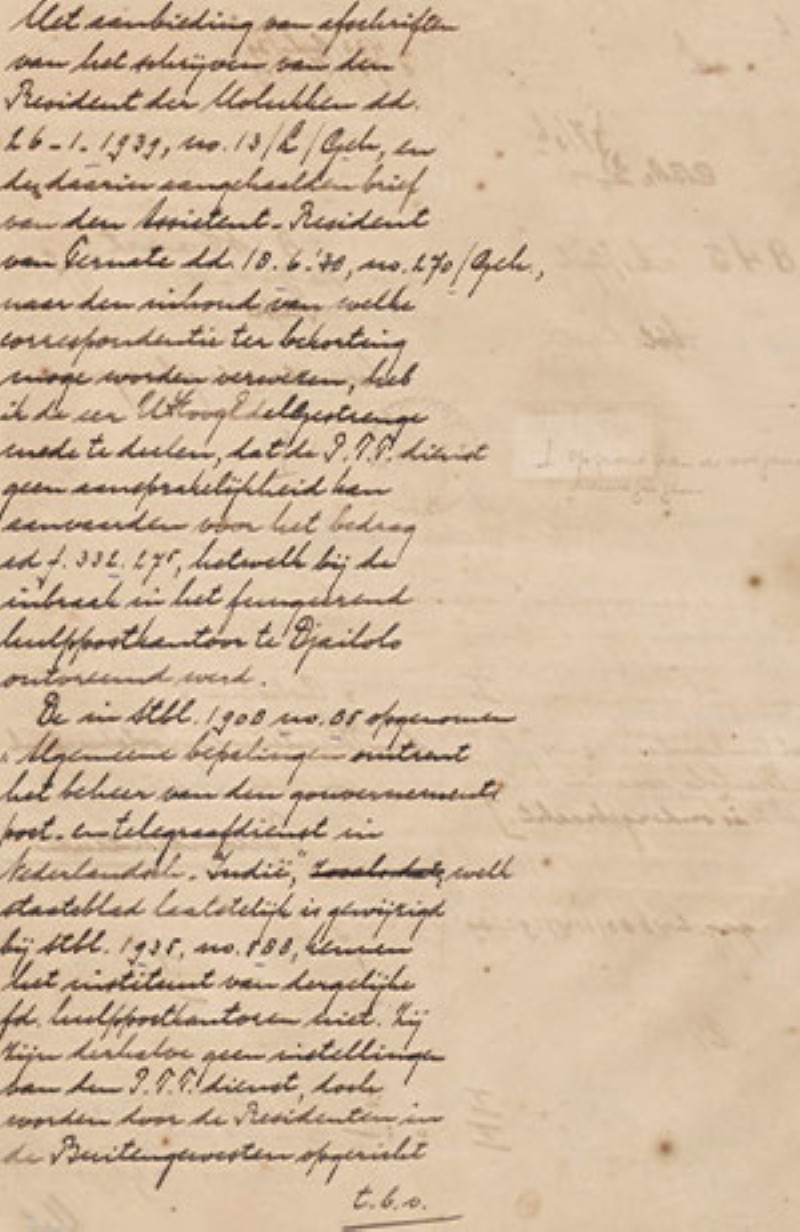 Met aanbieding van afschriften
van het schrijven van den
Resident der Molukken dd.
26-1-1939, no. 13/L/Geh, en
den daarin aangehaalden brief
van den Assistent-Resident
van Ternate dd. 18.6.'38, no. 270/Geh,
naar den inhoud van welke
correspondentie ter bekorting
moge worden verwezen, heb
ik de eer UHoogEdelGestrenge
mede te deelen, dat de P.T.T. dienst
geen aansprakelijkheid kan
aanvaarden voor het bedrag
ad f. 332.275, hetwelk bij de
inbraak in het fungeerend
hulppostkantoor te Djailolo
ontvreemd werd.
De in Stbl. 1908 no. 85 opgenomen
"Algemeene bepalingen omtrent
het beheer van den gouvernements
post- en telegraafdienst in
Nederlandsch-Indië", welk
staatsblad laatstelijk is gewijzigd
bij Stbl. 1935, no. 588, kennen
het instituut van dergelijke
fd. hulppostkantoren niet. Zij
zijn derhalve geen instellingen
van den P.T.T. dienst, doch
worden door de Residenten in
de Buitengewesten opgericht
t.b.v.